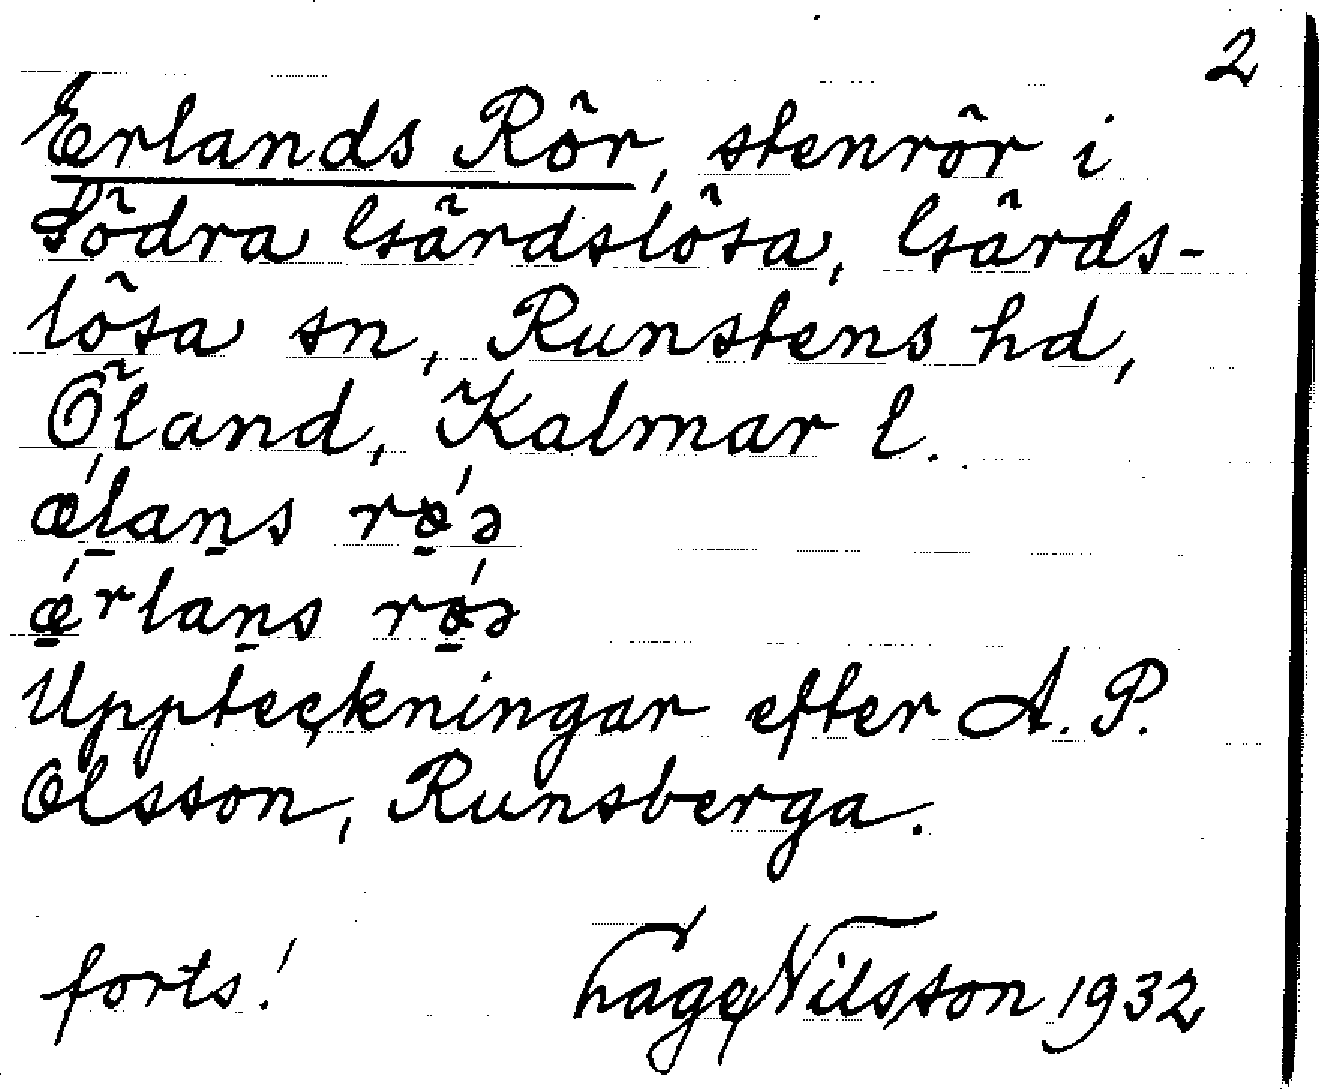 2
Erlands Rör, stenrör i
Södra Gärdslösa, Gärds-
lösa sn, Runstens hd,
Öland, Kalmar l.
ǽla̠n̠s rǿ̠ə
ǽ̠ʳlan̠s rǿ̠ə
Uppteckningar efter A. P.
Olsson, Runsberga.
forts! Hage Nilsson 1932